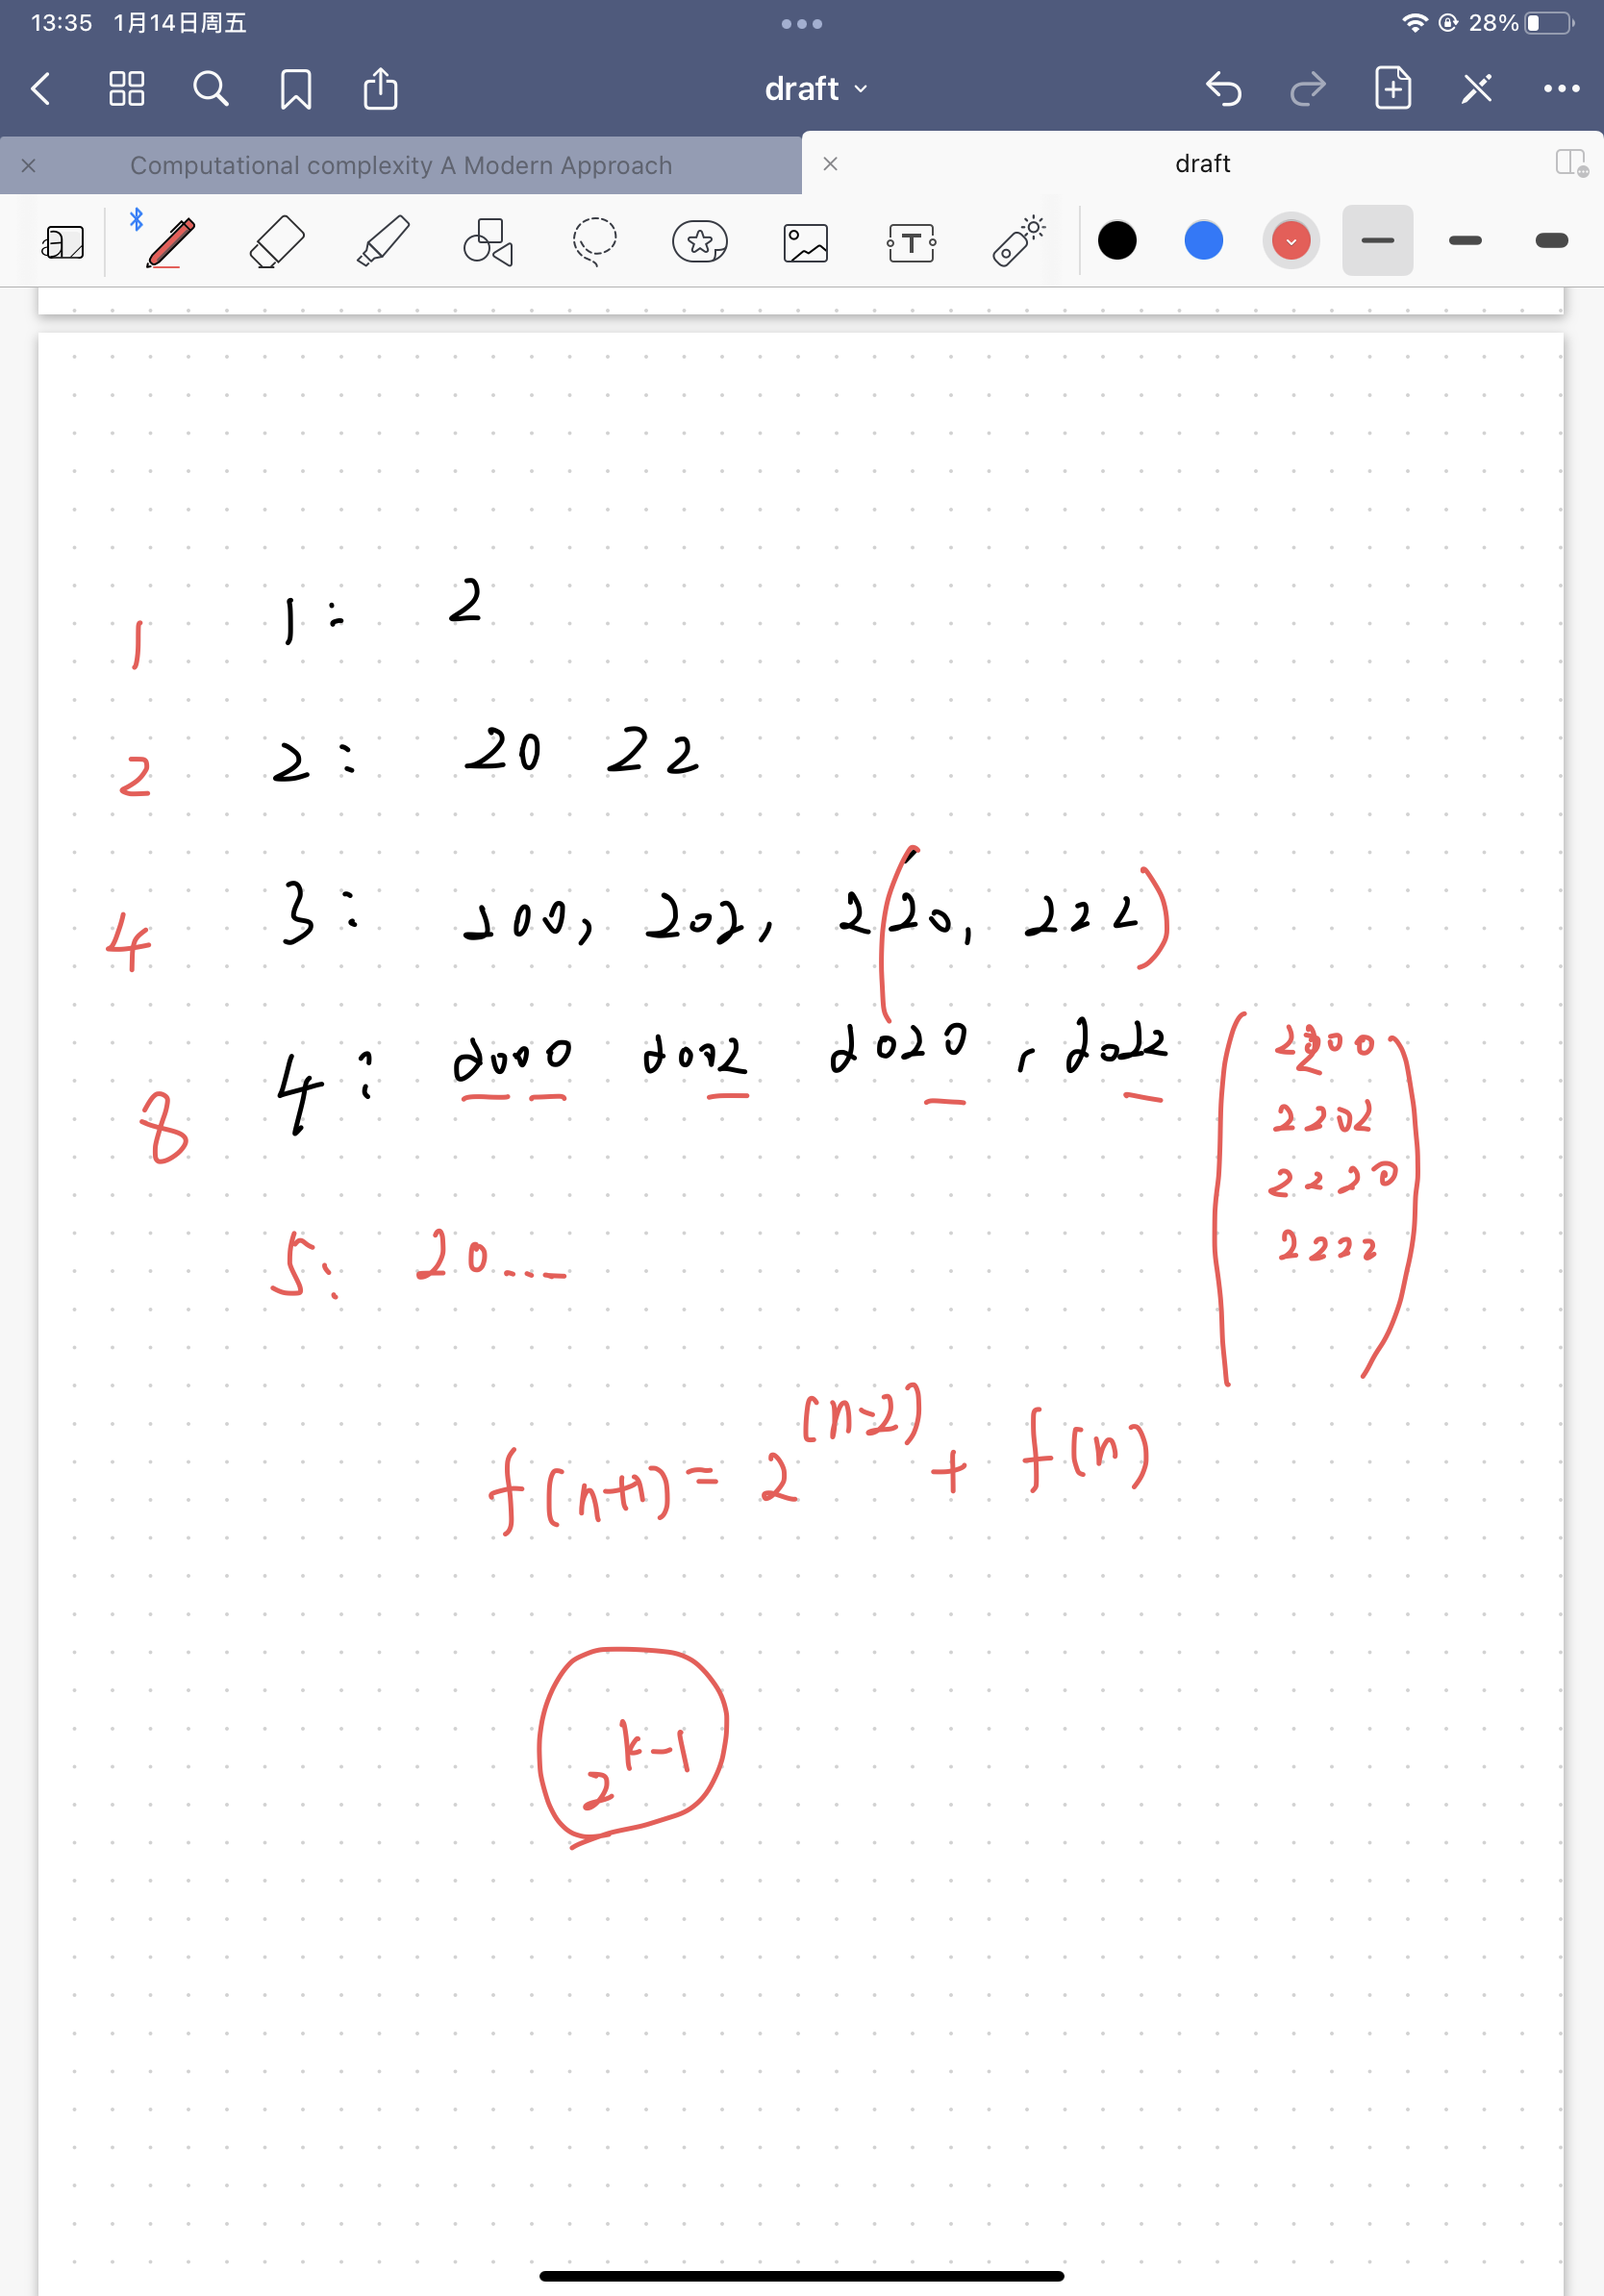 13:35 1月14日周五 28%
draft
Computational complexity A Modern Approach
draft
T
1 1: 2
2 2: 20 22
4 3: 200, 202, 220, 222
8 4: 2000 2002 2020, 2022
2200
2202
2220
2222
5: 20...
f(n+1) = 2^(n-2) + f(n)
2^k-1